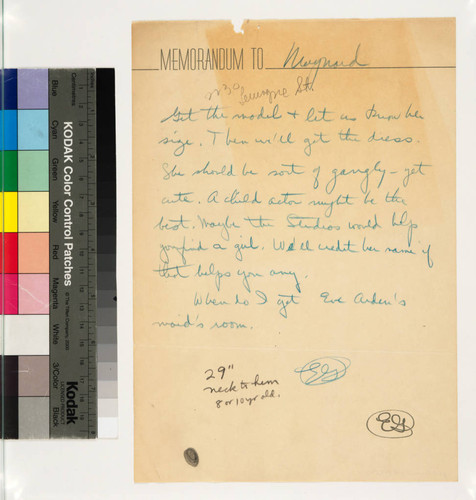 MEMORANDUM TO Maynard
St.
Get the model & let us know her
size. Then we'll get the dress.
She should be sort of gangly - yet
cute. A child actor might be the
best. Maybe the Studios would help
you find a girl. We'll credit her name if
that helps you any.
When do I get Eve Arden's
maid's room.
EG
29"
neck to hem
8 or 10 yr old.
EG
KODAK Color Control Patches
Centimetres
Blue
Cyan
Green
Yellow
Red
Magenta
White
3/Color
Black
Kodak